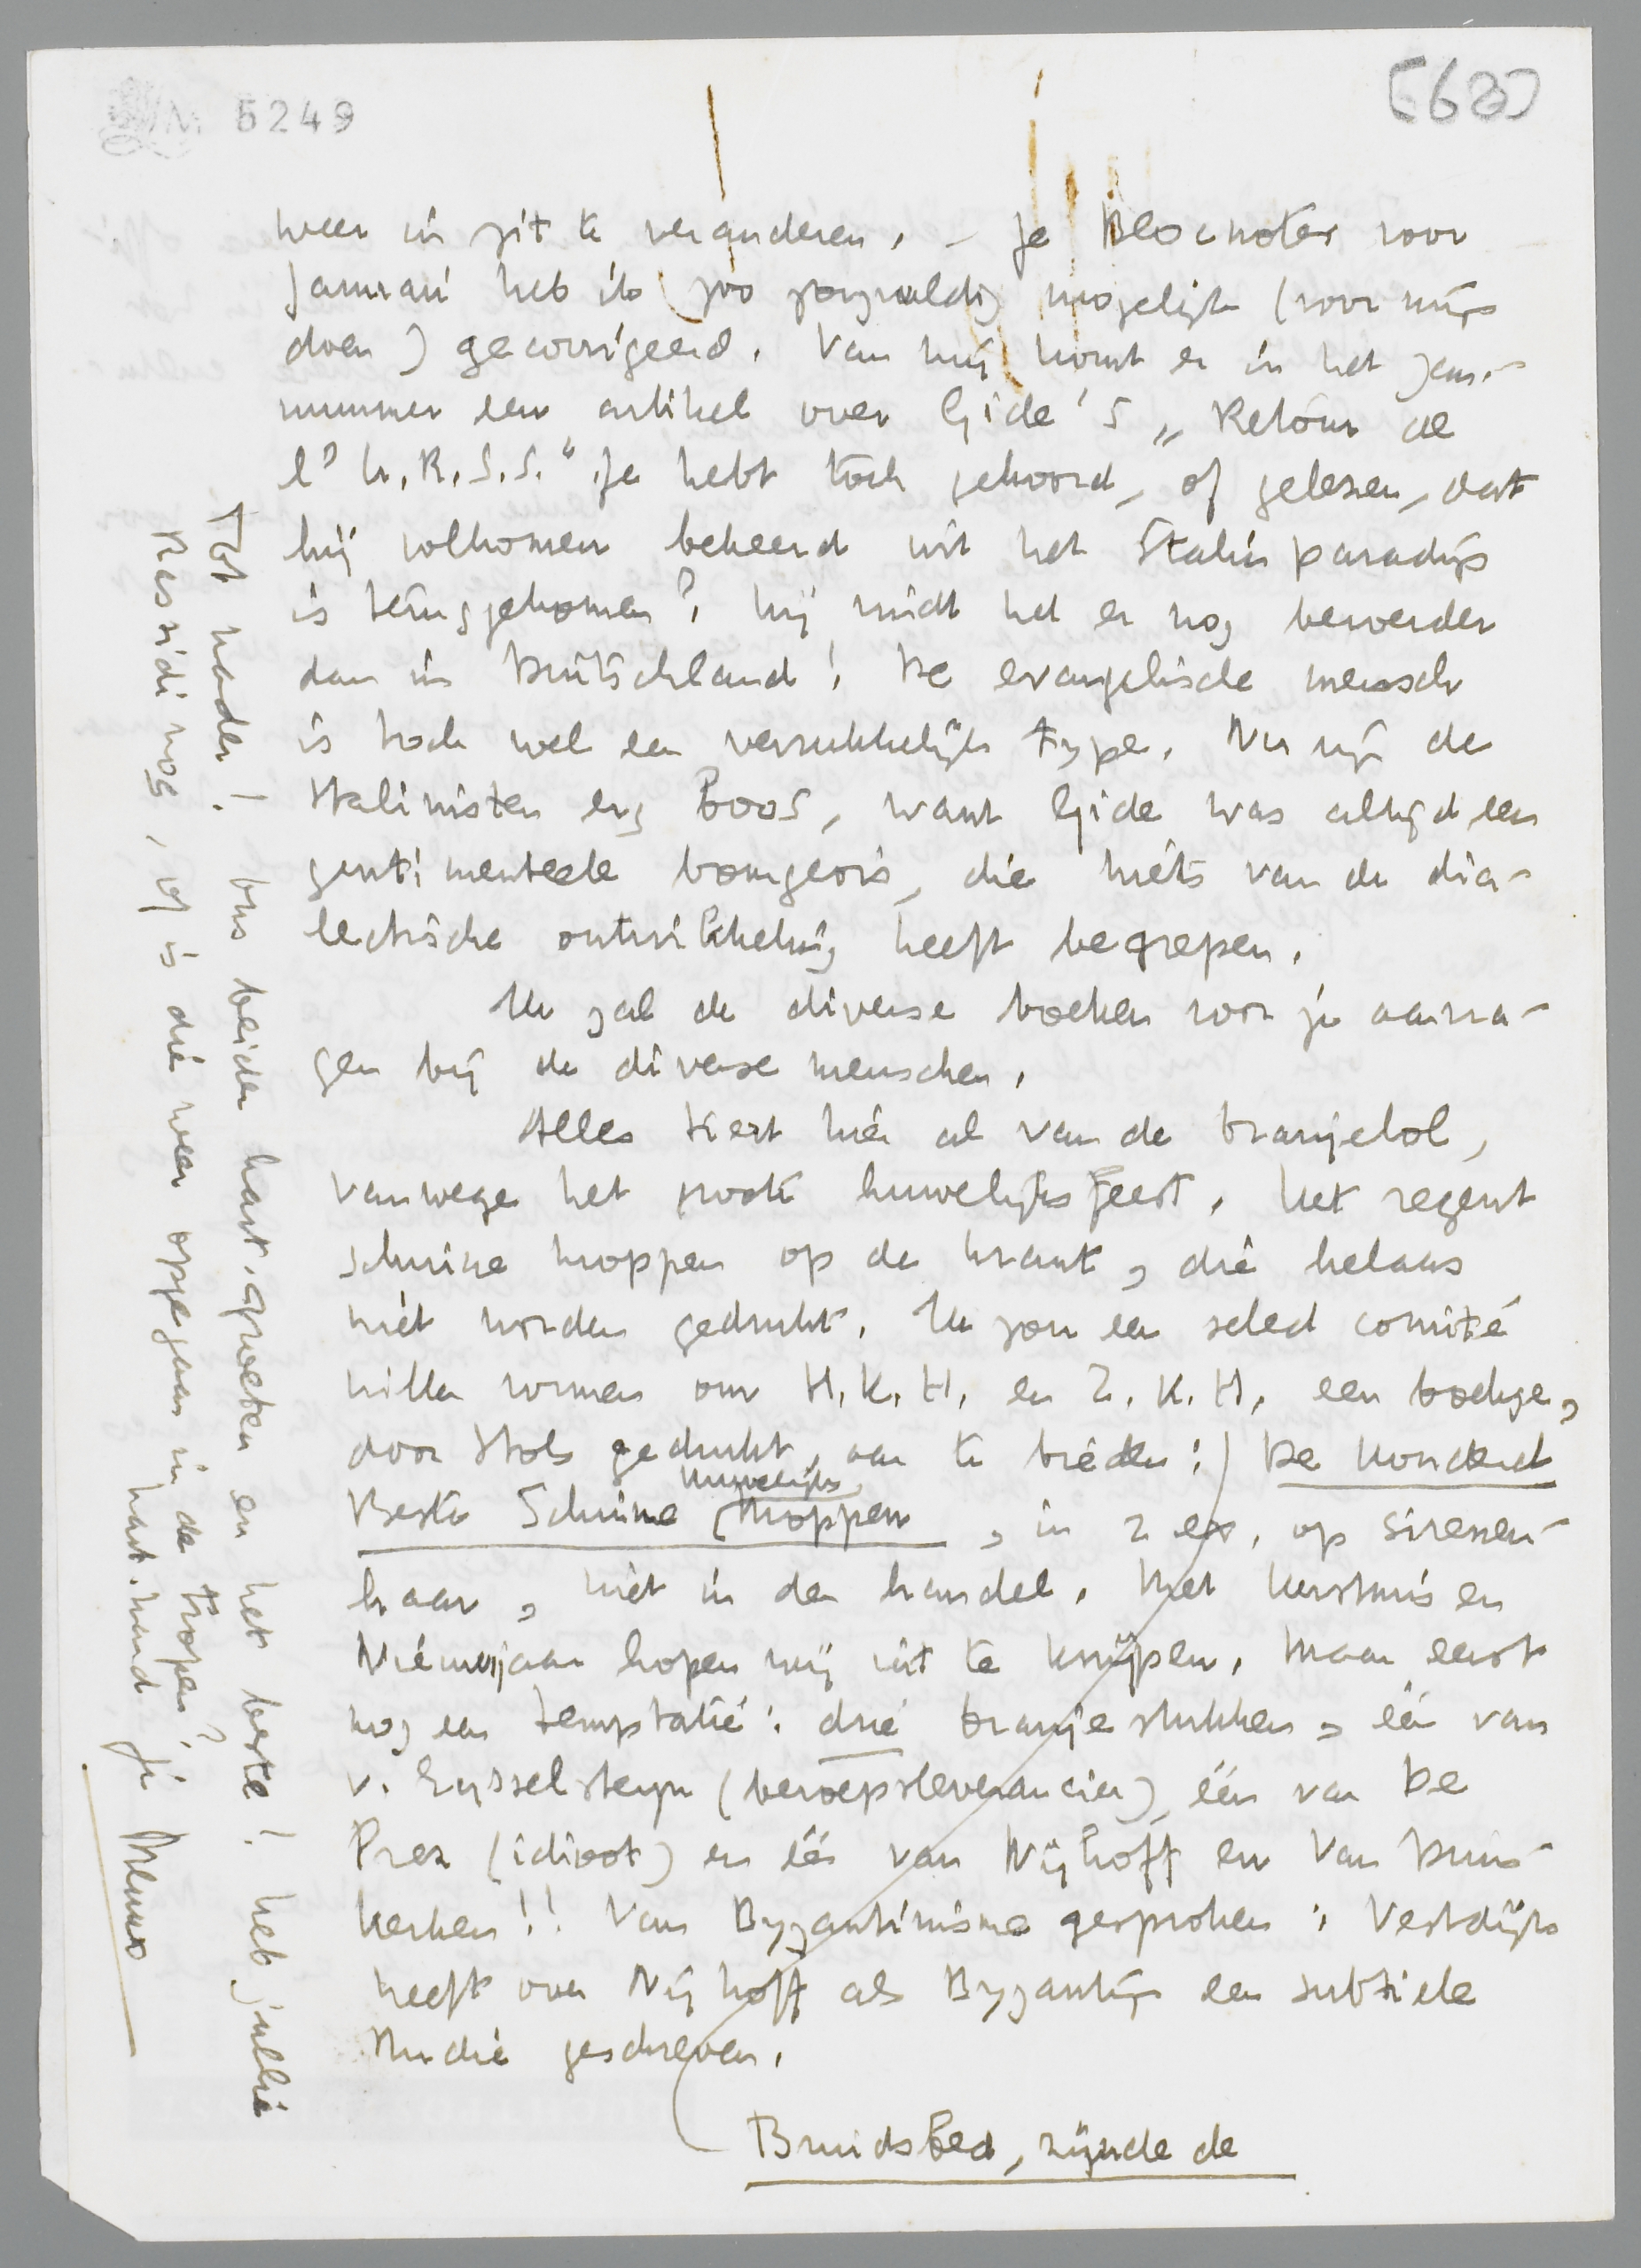 5249
(68)
weer in zit te veranderen. – Je Blocnotes voor
Januari heb ik zoo zorgvuldig mogelijk (voor mijn
doen) gecorrigeerd. Van mij komt er in het Jan.-
nummer een artikel over Gide's „Retour de
l'U.R.S.S." Je hebt toch gehoord, of gelezen, dat
hij volkomen bekeerd uit het Stalin paradijs
is teruggekomen? Hij vindt het er nog beroerder
dan in Duitschland! De evangelische mensch
is toch wel een verrukkelijk type. Nu zijn de
Stalinisten erg boos, want Gide was altijd een
sentimenteele bourgeois, die niets van de dia-
lectische ontwikkeling heeft begrepen.
Ik zal de diverse boeken voor je aanvra-
gen bij de diverse menschen.
Alles tiert hier al van de Oranjelol,
vanwege het groote huwelijksfeest. Het regent
schuine moppen op de krant, die helaas
niet worden gedrukt. Ik zou een select comité
willen vormen om H.K.H. en Z.K.H. een boekje,
door Stols gedrukt, aan te bieden: De Honderd
Beste Schuine Huwelijks moppen, in 2 ex. op sirenen-
haar, niet in den handel. Met Kerstmis en
Nieuwjaar hopen wij uit te knijpen. Maar eerst
nog een temptatie: drie Oranjestukken, één van
v. Eysselsteyn (beroepsleverancier), één van De
Prez (idioot) en één van Nijhoff en Van Duin-
kerken!! Van Byzantinisme gesproken: Vestdijk
heeft over Nijhoff als Byzantijn een subtiele
studie geschreven.
Bruidsbed, zijnde de
Tot nader! Ons beider hart. groeten en het beste! Heb jullie
Ressidi nog, of is die weer opgegaan in de tropen?
hart. hand je Menno